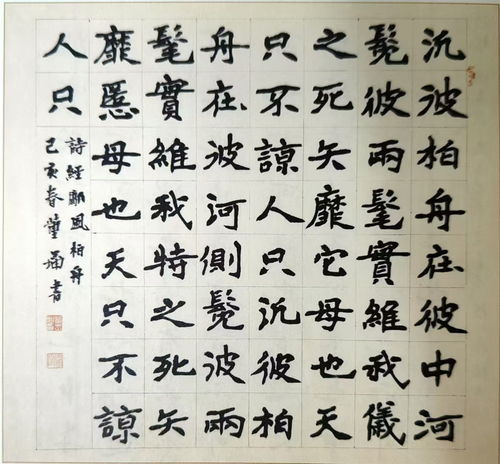 汎彼柏舟在彼中河
髧彼兩髦實維我儀
之死矢靡它母也天
只不諒人只汎彼柏
舟在彼河側髧彼兩
髦實維我特之死矢
靡慝母也天只不諒
人只
詩經鄘風柏舟
己亥春書